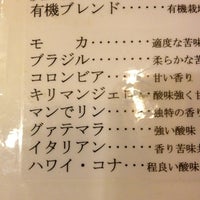 有機ブレンド・・・・・・有機栽培
モ　　カ・・・・・・・・適度な苦味
ブラジル・・・・・・・・柔らかな苦
コロンビア・・・・・・・甘い香り
キリマンジェロ・・・・・酸味強く甘
マンでリン・・・・・・・独特の香り
グァテマラ・・・・・・・強い酸味
イタリアン・・・・・・・香り苦味
ハワイ・コナ・・・・・・程良い酸味